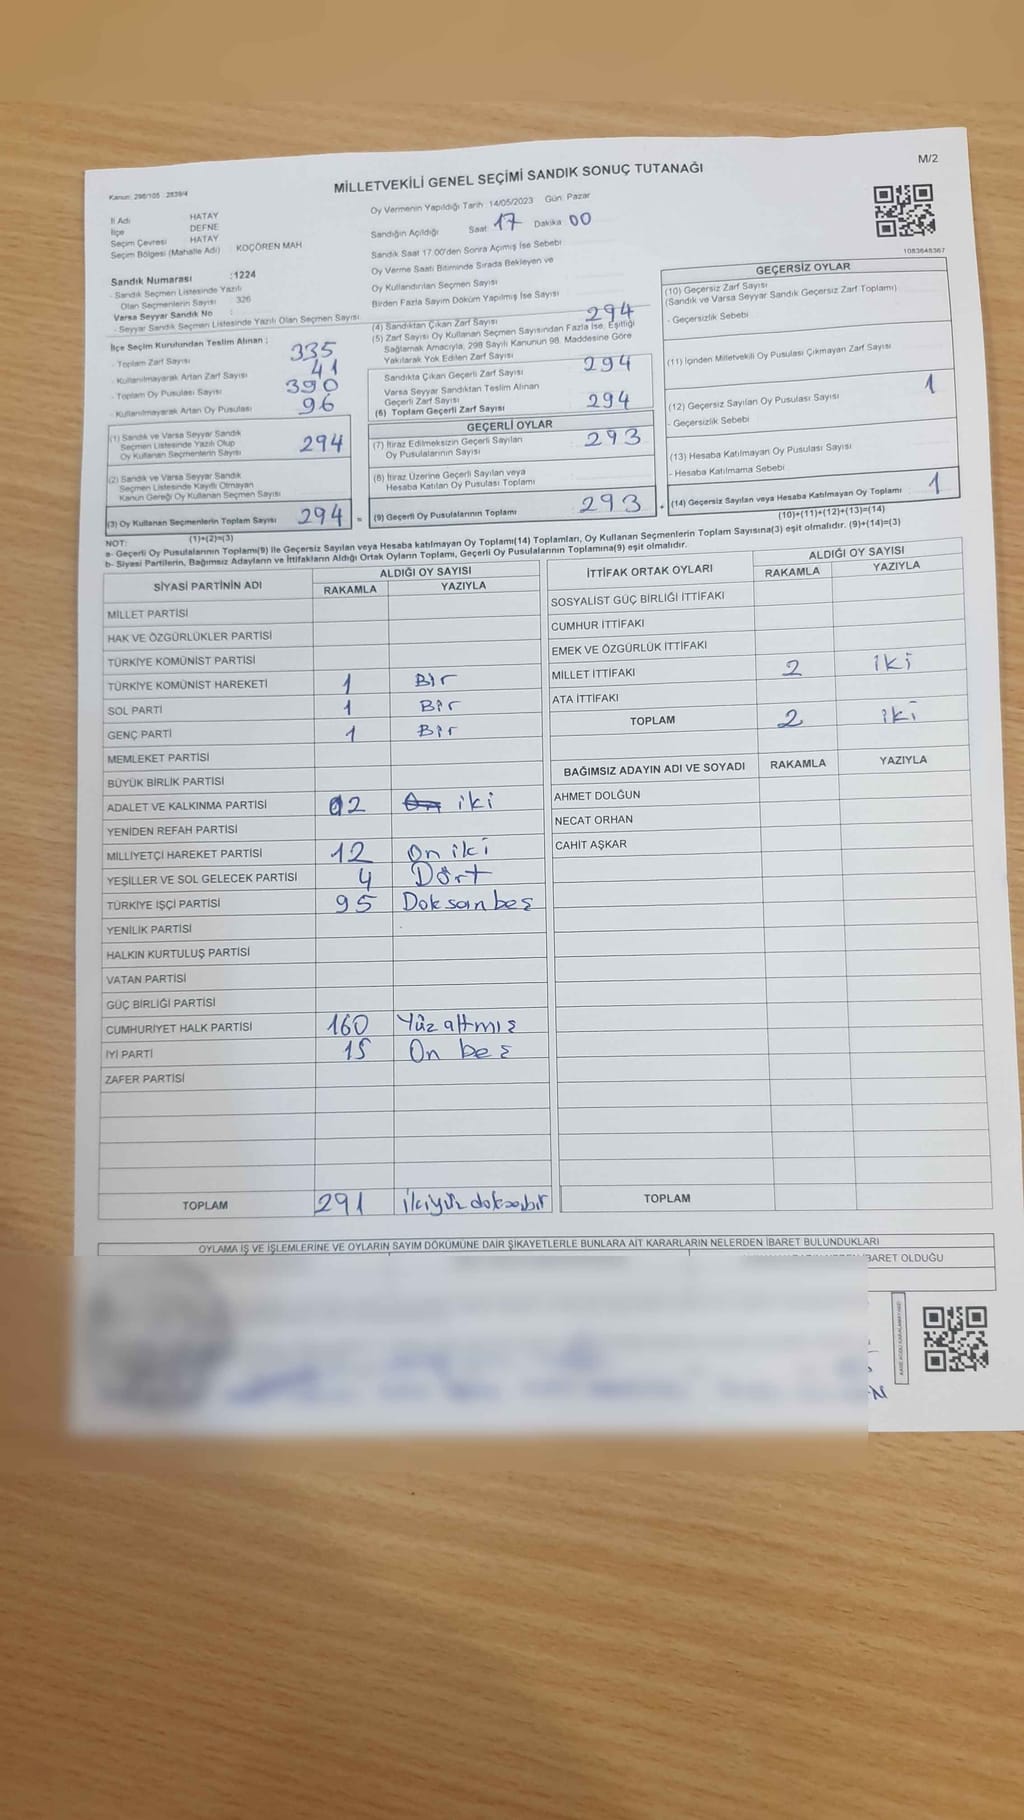 M/2
Kanun: 298/105 - 2839/4
MİLLETVEKİLİ GENEL SEÇİMİ SANDIK SONUÇ TUTANAĞI
İl Adı HATAY
İlçe DEFNE
Seçim Çevresi HATAY
Seçim Bölgesi (Mahalle Adı) : KOÇÖREN MAH
Sandık Numarası :1224
- Sandık Seçmen Listesinde Yazılı
Olan Seçmenlerin Sayısı : 326
Varsa Seyyar Sandık No :
- Seyyar Sandık Seçmen Listesinde Yazılı Olan Seçmen Sayısı
İlçe Seçim Kurulundan Teslim Alınan ;
- Toplam Zarf Sayısı 335
- Kullanılmayarak Artan Zarf Sayısı 41
- Toplam Oy Pusulası Sayısı 390
- Kullanılmayarak Artan Oy Pusulası 96
(1) Sandık ve Varsa Seyyar Sandık
Seçmen Listesinde Yazılı Olup
Oy Kullanan Seçmenlerin Sayısı 294
(2) Sandık ve Varsa Seyyar Sandık
Seçmen Listesinde Kayıtlı Olmayan
Kanun Gereği Oy Kullanan Seçmen Sayısı
(3) Oy Kullanan Seçmenlerin Toplam Sayısı 294 =
(1)+(2)=(3)
Oy Vermenin Yapıldığı Tarih :14/05/2023 Gün: Pazar
Sandığın Açıldığı Saat 17 Dakika 00
Sandık Saat 17.00'den Sonra Açımış İse Sebebi
Oy Verme Saati Bitiminde Sırada Bekleyen ve
Oy Kullandırılan Seçmen Sayısı
Birden Fazla Sayım Döküm Yapılmış İse Sayısı
(4) Sandıktan Çıkan Zarf Sayısı 294
(5) Zarf Sayısı Oy Kullanan Seçmen Sayısından Fazla İse, Eşitliği
Sağlamak Amacıyla, 298 Sayılı Kanunun 98. Maddesine Göre
Yakılarak Yok Edilen Zarf Sayısı
Sandıkta Çıkan Geçerli Zarf Sayısı 294
Varsa Seyyar Sandıktan Teslim Alınan
Geçerli Zarf Sayısı
(6) Toplam Geçerli Zarf Sayısı 294
GEÇERLİ OYLAR
(7) İtiraz Edilmeksizin Geçerli Sayılan
Oy Pusulalarının Sayısı 293
(8) İtiraz Üzerine Geçerli Sayılan veya
Hesaba Katılan Oy Pusulası Toplamı
(9) Geçerli Oy Pusulalarının Toplamı 293 +
1083648367
GEÇERSİZ OYLAR
(10) Geçersiz Zarf Sayısı
(Sandık ve Varsa Seyyar Sandık Geçersiz Zarf Toplamı)
- Geçersizlik Sebebi
(11) İçinden Milletvekili Oy Pusulası Çıkmayan Zarf Sayısı
(12) Geçersiz Sayılan Oy Pusulası Sayısı 1
- Geçersizlik Sebebi
(13) Hesaba Katılmayan Oy Pusulası Sayısı
- Hesaba Katılmama Sebebi
(14) Geçersiz Sayılan veya Hesaba Katılmayan Oy Toplamı 1
(10)+(11)+(12)+(13)=(14)
NOT:
a- Geçerli Oy Pusulalarının Toplamı(9) ile Geçersiz Sayılan veya Hesaba katılmayan Oy Toplamı(14) Toplamları, Oy Kullanan Seçmenlerin Toplam Sayısına(3) eşit olmalıdır. (9)+(14)=(3)
b- Siyasi Partilerin, Bağımsız Adayların ve İttifakların Aldığı Ortak Oyların Toplamı, Geçerli Oy Pusulalarının Toplamına(9) eşit olmalıdır.
SİYASİ PARTİNİN ADI ALDIĞI OY SAYISI
RAKAMLA YAZIYLA
MİLLET PARTİSİ
HAK VE ÖZGÜRLÜKLER PARTİSİ
TÜRKİYE KOMÜNİST PARTİSİ
TÜRKİYE KOMÜNİST HAREKETİ 1 Bir
SOL PARTİ 1 Bir
GENÇ PARTİ 1 Bir
MEMLEKET PARTİSİ
BÜYÜK BİRLİK PARTİSİ
ADALET VE KALKINMA PARTİSİ 02 On iki
YENİDEN REFAH PARTİSİ
MİLLİYETÇİ HAREKET PARTİSİ 12 On iki
YEŞİLLER VE SOL GELECEK PARTİSİ 4 Dört
TÜRKİYE İŞÇİ PARTİSİ 95 Doksan beş
YENİLİK PARTİSİ
HALKIN KURTULUŞ PARTİSİ
VATAN PARTİSİ
GÜÇ BİRLİĞİ PARTİSİ
CUMHURİYET HALK PARTİSİ 160 Yüz altmış
İYİ PARTİ 15 On beş
ZAFER PARTİSİ
TOPLAM 291 ikiyüz doksanbir
İTTİFAK ORTAK OYLARI ALDIĞI OY SAYISI
RAKAMLA YAZIYLA
SOSYALİST GÜÇ BİRLİĞİ İTTİFAKI
CUMHUR İTTİFAKI
EMEK VE ÖZGÜRLÜK İTTİFAKI
MİLLET İTTİFAKI 2 iki
ATA İTTİFAKI
TOPLAM 2 iki
BAĞIMSIZ ADAYIN ADI VE SOYADI RAKAMLA YAZIYLA
AHMET DOLĞUN
NECAT ORHAN
CAHİT AŞKAR
TOPLAM
OYLAMA İŞ VE İŞLEMLERİNE VE OYLARIN SAYIM DÖKÜMÜNE DAİR ŞİKAYETLERLE BUNLARA AİT KARARLARIN NELERDEN İBARET BULUNDUKLARI
İBARET OLDUĞU